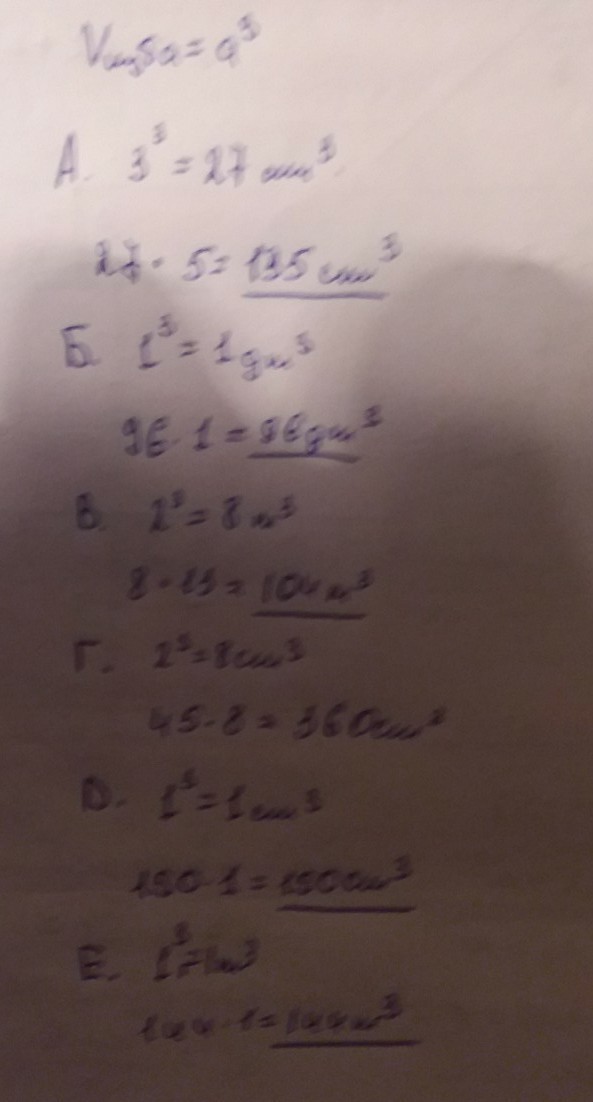 Vкуба = a³
А. 3³ = 27 см³
27 · 5 = 135 см³
Б. 1³ = 1 дм³
96 · 1 = 96 дм³
В. 2³ = 8 м³
8 · 13 = 104 м³
Г. 2³ = 8 см³
45 · 8 = 360 см³
D. 1³ = 1 см³
· 1 =
Е. 1³ = 1 м³
144 · 1 = 144 м³